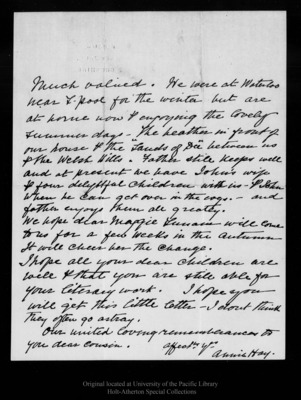 Much valued. We were at Waterloo
near L'pool for the winter but are
at home now & enjoying the lovely
summer days - The heather in front of
our house & the "Sands of Dee" between us
& the Welsh Hills. Father still keeps well
and at present we have John's wife
& four delightful children with us - & John
when he can get over in the evgs. - and
father enjoys them all greatly.
We hope dear Maggie Lunam will come
to us for a few weeks in the Autumn
It will cheer her the change.
I hope all your dear children are
well & that you are still able for
your literary work. I hope you
will get this little letter - I don't think
they often go astray.
Our united loving remembrances to
you dear cousin. affectly yr.
Annie Hay.
Original located at University of the Pacific Library
Holt-Atherton Special Collections